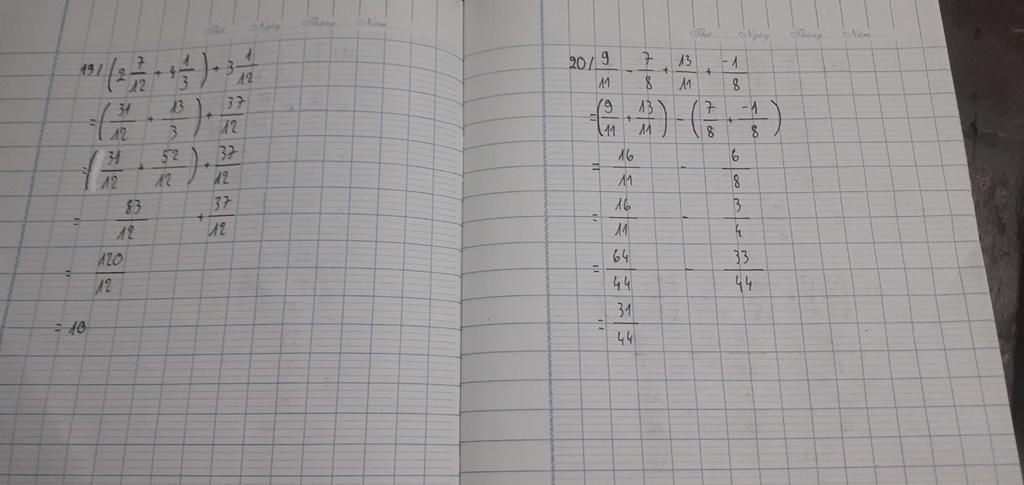 Thứ Ngày Tháng Năm
19/ (2 7/12 + 4 1/3) + 3 1/12
= (31/12 + 13/3) + 37/12
= (31/12 + 52/12) + 37/12
= 83/12 + 37/12
= 120/12
= 10
Thứ Ngày Tháng Năm
20/ 9/11 - 7/8 + 13/11 + -1/8
= (9/11 + 13/11) - (7/8 + -1/8)
= 16/11 - 6/8
= 16/11 - 3/4
= 64/44 - 33/44
= 31/44